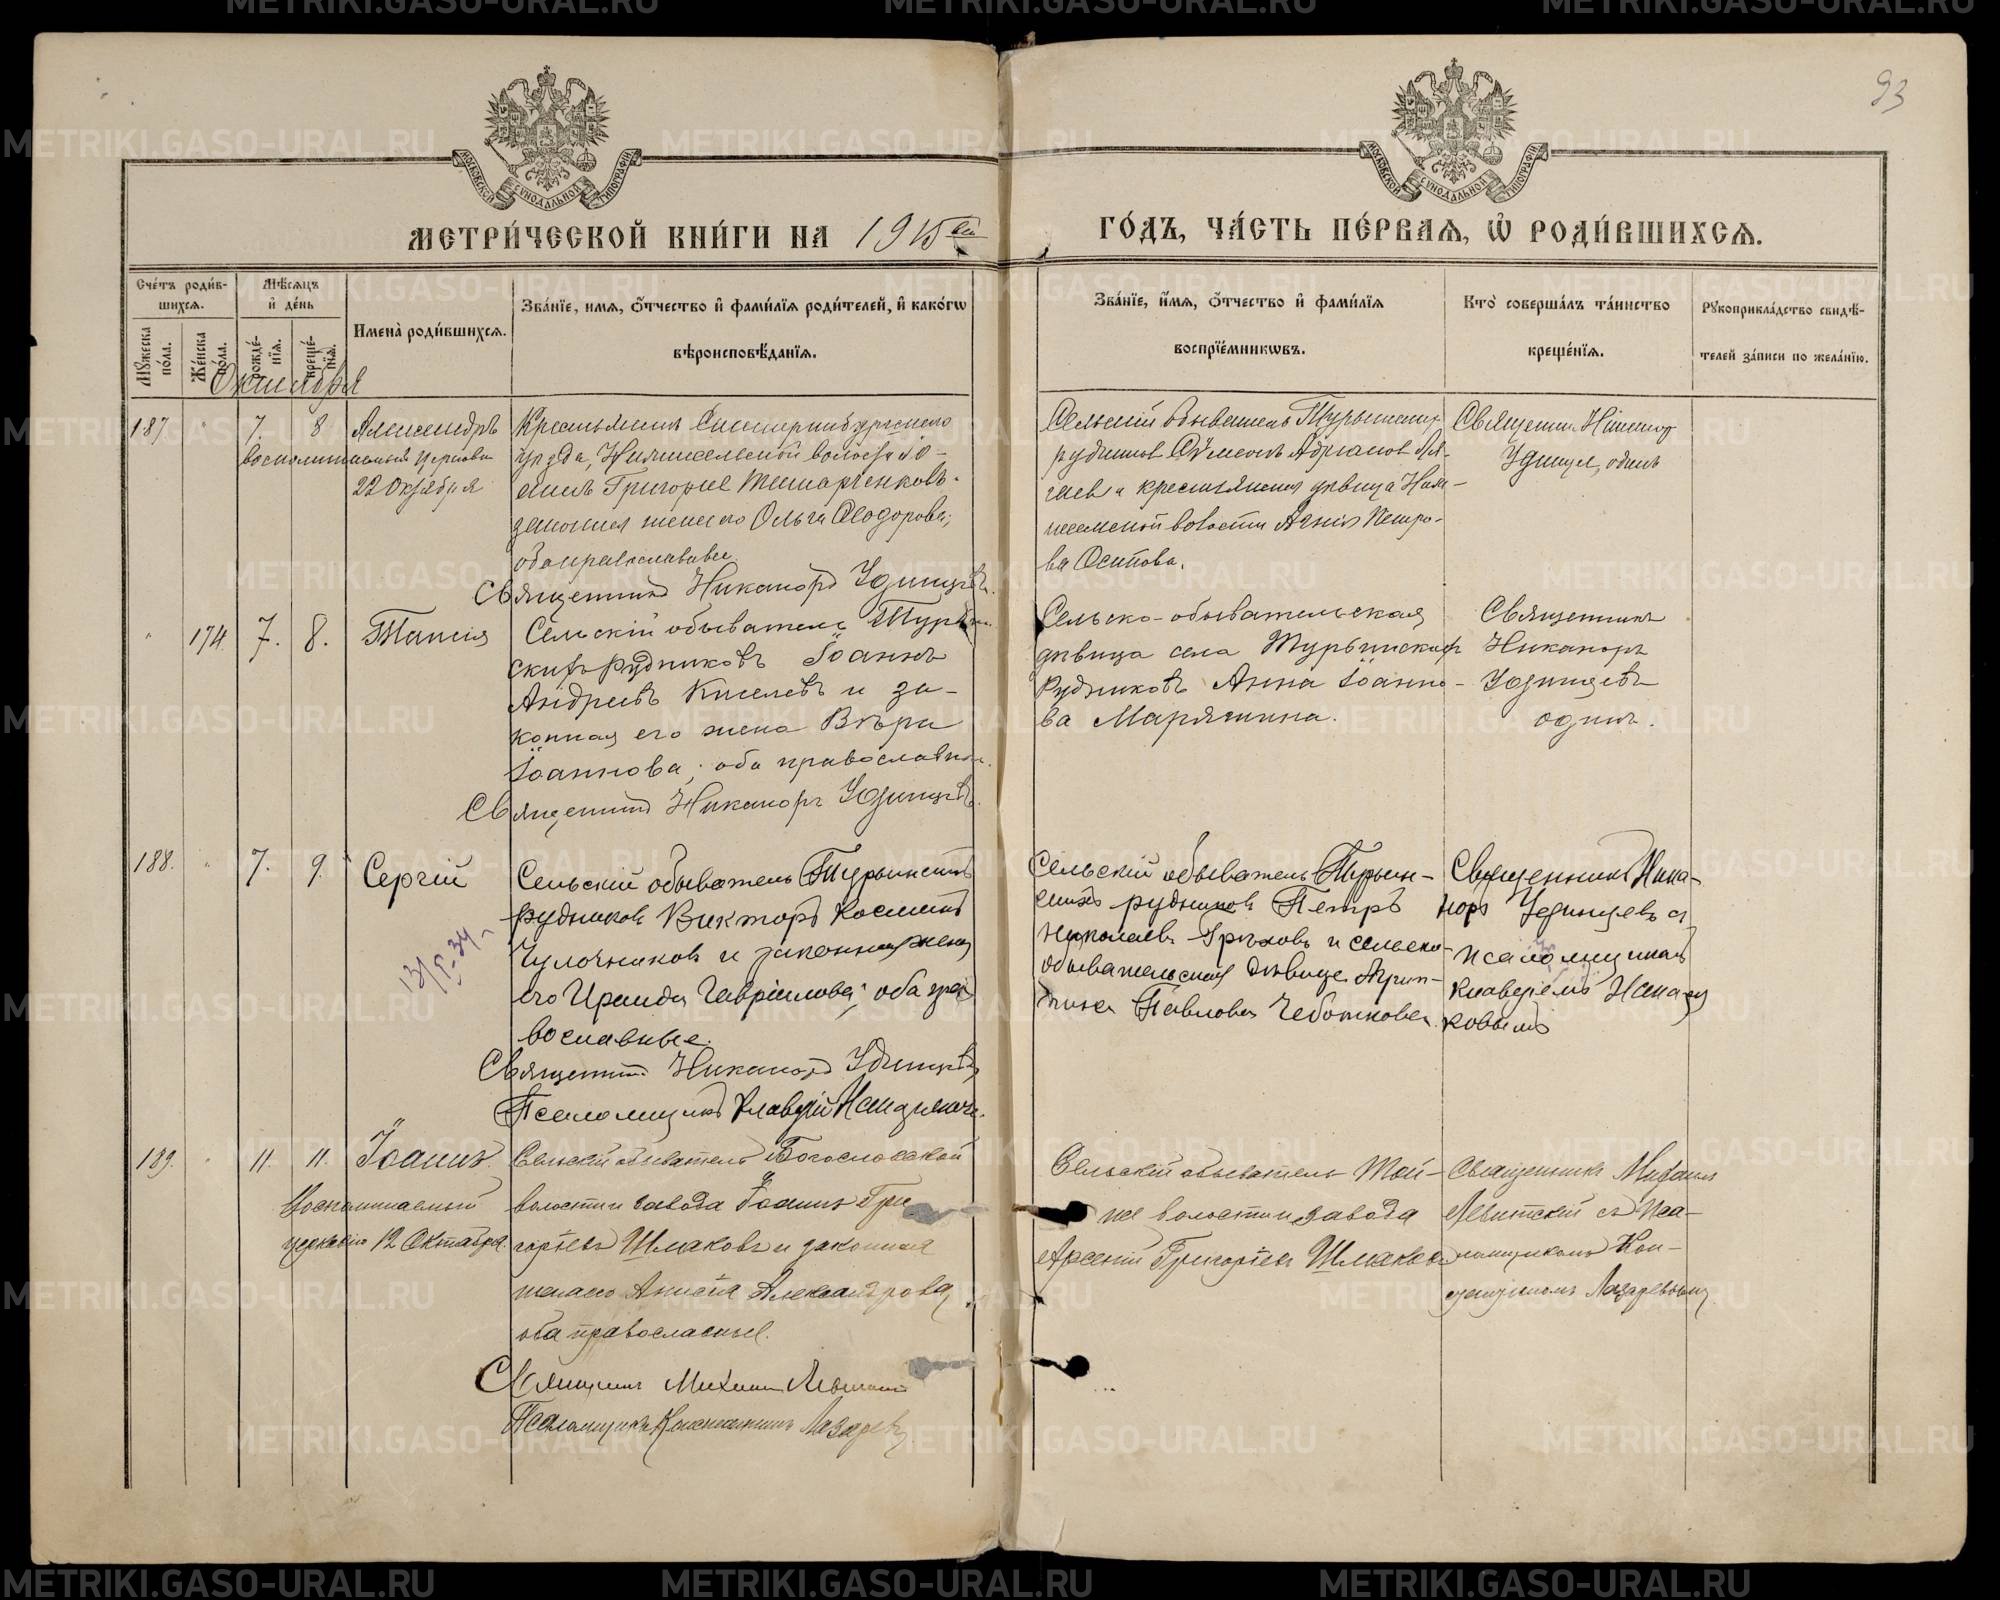 93
МОСКОВСКОЙ СѴНОДАЛЬНОЙ ТИПОГРАФІИ
МОСКОВСКОЙ СѴНОДАЛЬНОЙ ТИПОГРАФІИ
МЕТРИ́ЧЕСКОЙ КНИ́ГИ НА 1915 ый
ГО́ДЪ, ЧА́СТЬ ПЕ́РВАЯ, Ѽ РОДИ́ВШИХСЯ.
Сче́тъ роди́в-
шихся.
Мѣ́сяцъ
и҆ де́нь
Мꙋ́жеска
по́ла.
Же́нска
по́ла.
рожде́-
нїя.
креще́-
нїя.
Имена̀ роди́вшихся.
Зва́нїе, имя, ѻ҆́тчество и҆ фами́лїя роди́телей, и҆ како́гѡ
вѣроисповѣ́данїя.
Зва́нїе, и҆́мя, ѻ҆́тчество и҆ фами́лїя
воспрїе́мникѡвъ.
Кто̀ соверша́лъ та́инство
креще́нїя.
Рꙋкоприкла́дство свидѣ́-
телей за́писи по жела́нїю.
Октября
187 " 7. 8 Александръ
воспоминаемый церковью
22 Октября
Крестьянинъ Екатеринбургскаго
уѣзда,
волости
Григорьевъ
законная жена его Ольга Ѳеодорова,
оба православные.
Священникъ Никаноръ Удинцевъ.
Сельскій обыватель Турьинскихъ
рудниковъ Сѵмеонъ Адріановъ
и крестьянская дѣвица
волости Петро-
ва Осипова.
Священникъ Никаноръ
Удинцевъ, одинъ
" 174. 7. 8. Таисія
Сельскій обыватель Турьин-
скихъ рудниковъ Іоаннъ
Андреевъ Киселевъ и за-
конная его жена Вѣра
Іоаннова; оба православные.
Священникъ Никаноръ Удинцевъ.
Сельско-обывательская
дѣвица села Турьинскихъ
Рудниковъ Анна Іоанно-
ва Марягина.
Священникъ
Никаноръ
Удинцевъ
одинъ.
188. " 7. 9. Сергій
13/V-34
Сельскій обыватель Турьинскихъ
рудниковъ Викторъ Косминъ
Чулочниковъ и законная жена
его Ираида Гавріилова; оба пра-
вославные.
Священникъ Никаноръ Удинцевъ
Псаломщикъ Клавдій
Сельскій обыватель Турьин-
скихъ рудниковъ Петръ
Николаевъ Грѣховъ и сельско-
обывательская дѣвица Агрип-
пина Павлова Чеботкова.
Священникъ Ника-
норъ Удинцевъ съ
псаломщикомъ
Клавдіемъ
189. " 11. 11. Іоаннъ.
Воспоминаемый
церковію 12 Октября.
Сельскій обыватель Богословской
волости и завода Іоаннъ Гри
горьевъ Шмаковъ и законная
жена его Анисія Александрова,
оба православные.
Священникъ Михаилъ Левитскій
Псаломщикъ Константинъ Лазаревъ
Сельскій обыватель той-
же волости и завода
Арсеній Григорьевъ Шмаковъ
Священникъ Михаилъ
Левитскій съ Пса-
ломщикомъ Кон-
стантиномъ Лазаревымъ
METRIKI.GASO-URAL.RU